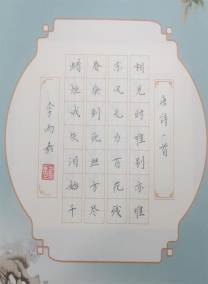 唐诗一首
相见时难别亦难
东风无力百花残
春蚕到死丝方尽
蜡炬成灰泪始干
李雨